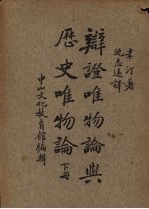 米汀著
沈志远譯
辯證唯物論與
歷史唯物論
下冊
中山文化教育館編輯